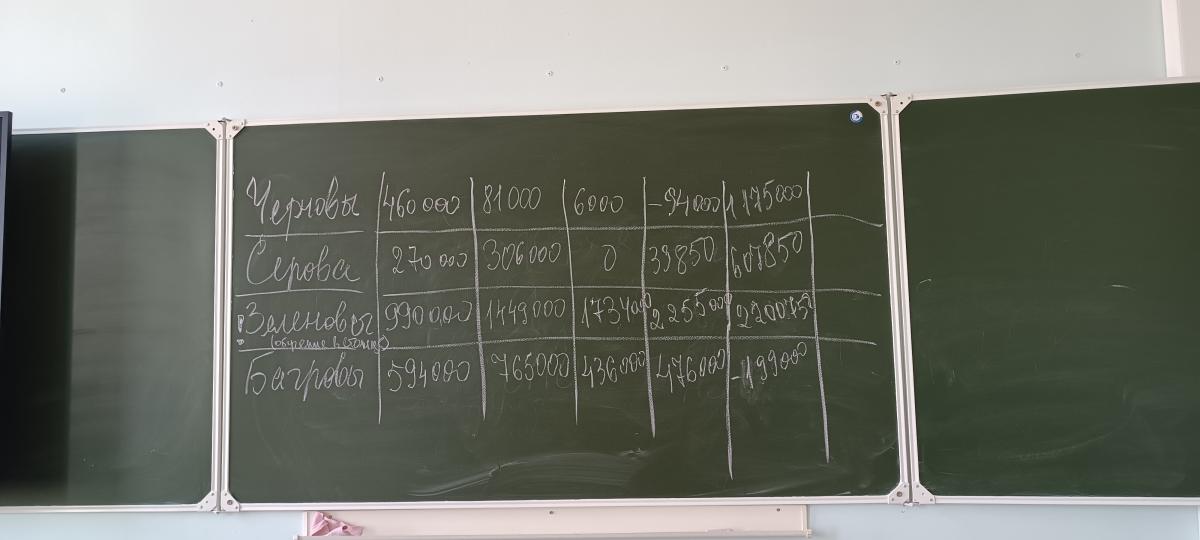 Черновы 460 000 81 000 6000 -94 000 1 175 000
Серова 270 000 306 000 0 39 850 607 850
! Зеленовы 990 000 1449 000 1734 000 2 255 000
Багровы 594 000 765 000 436 000 476 000